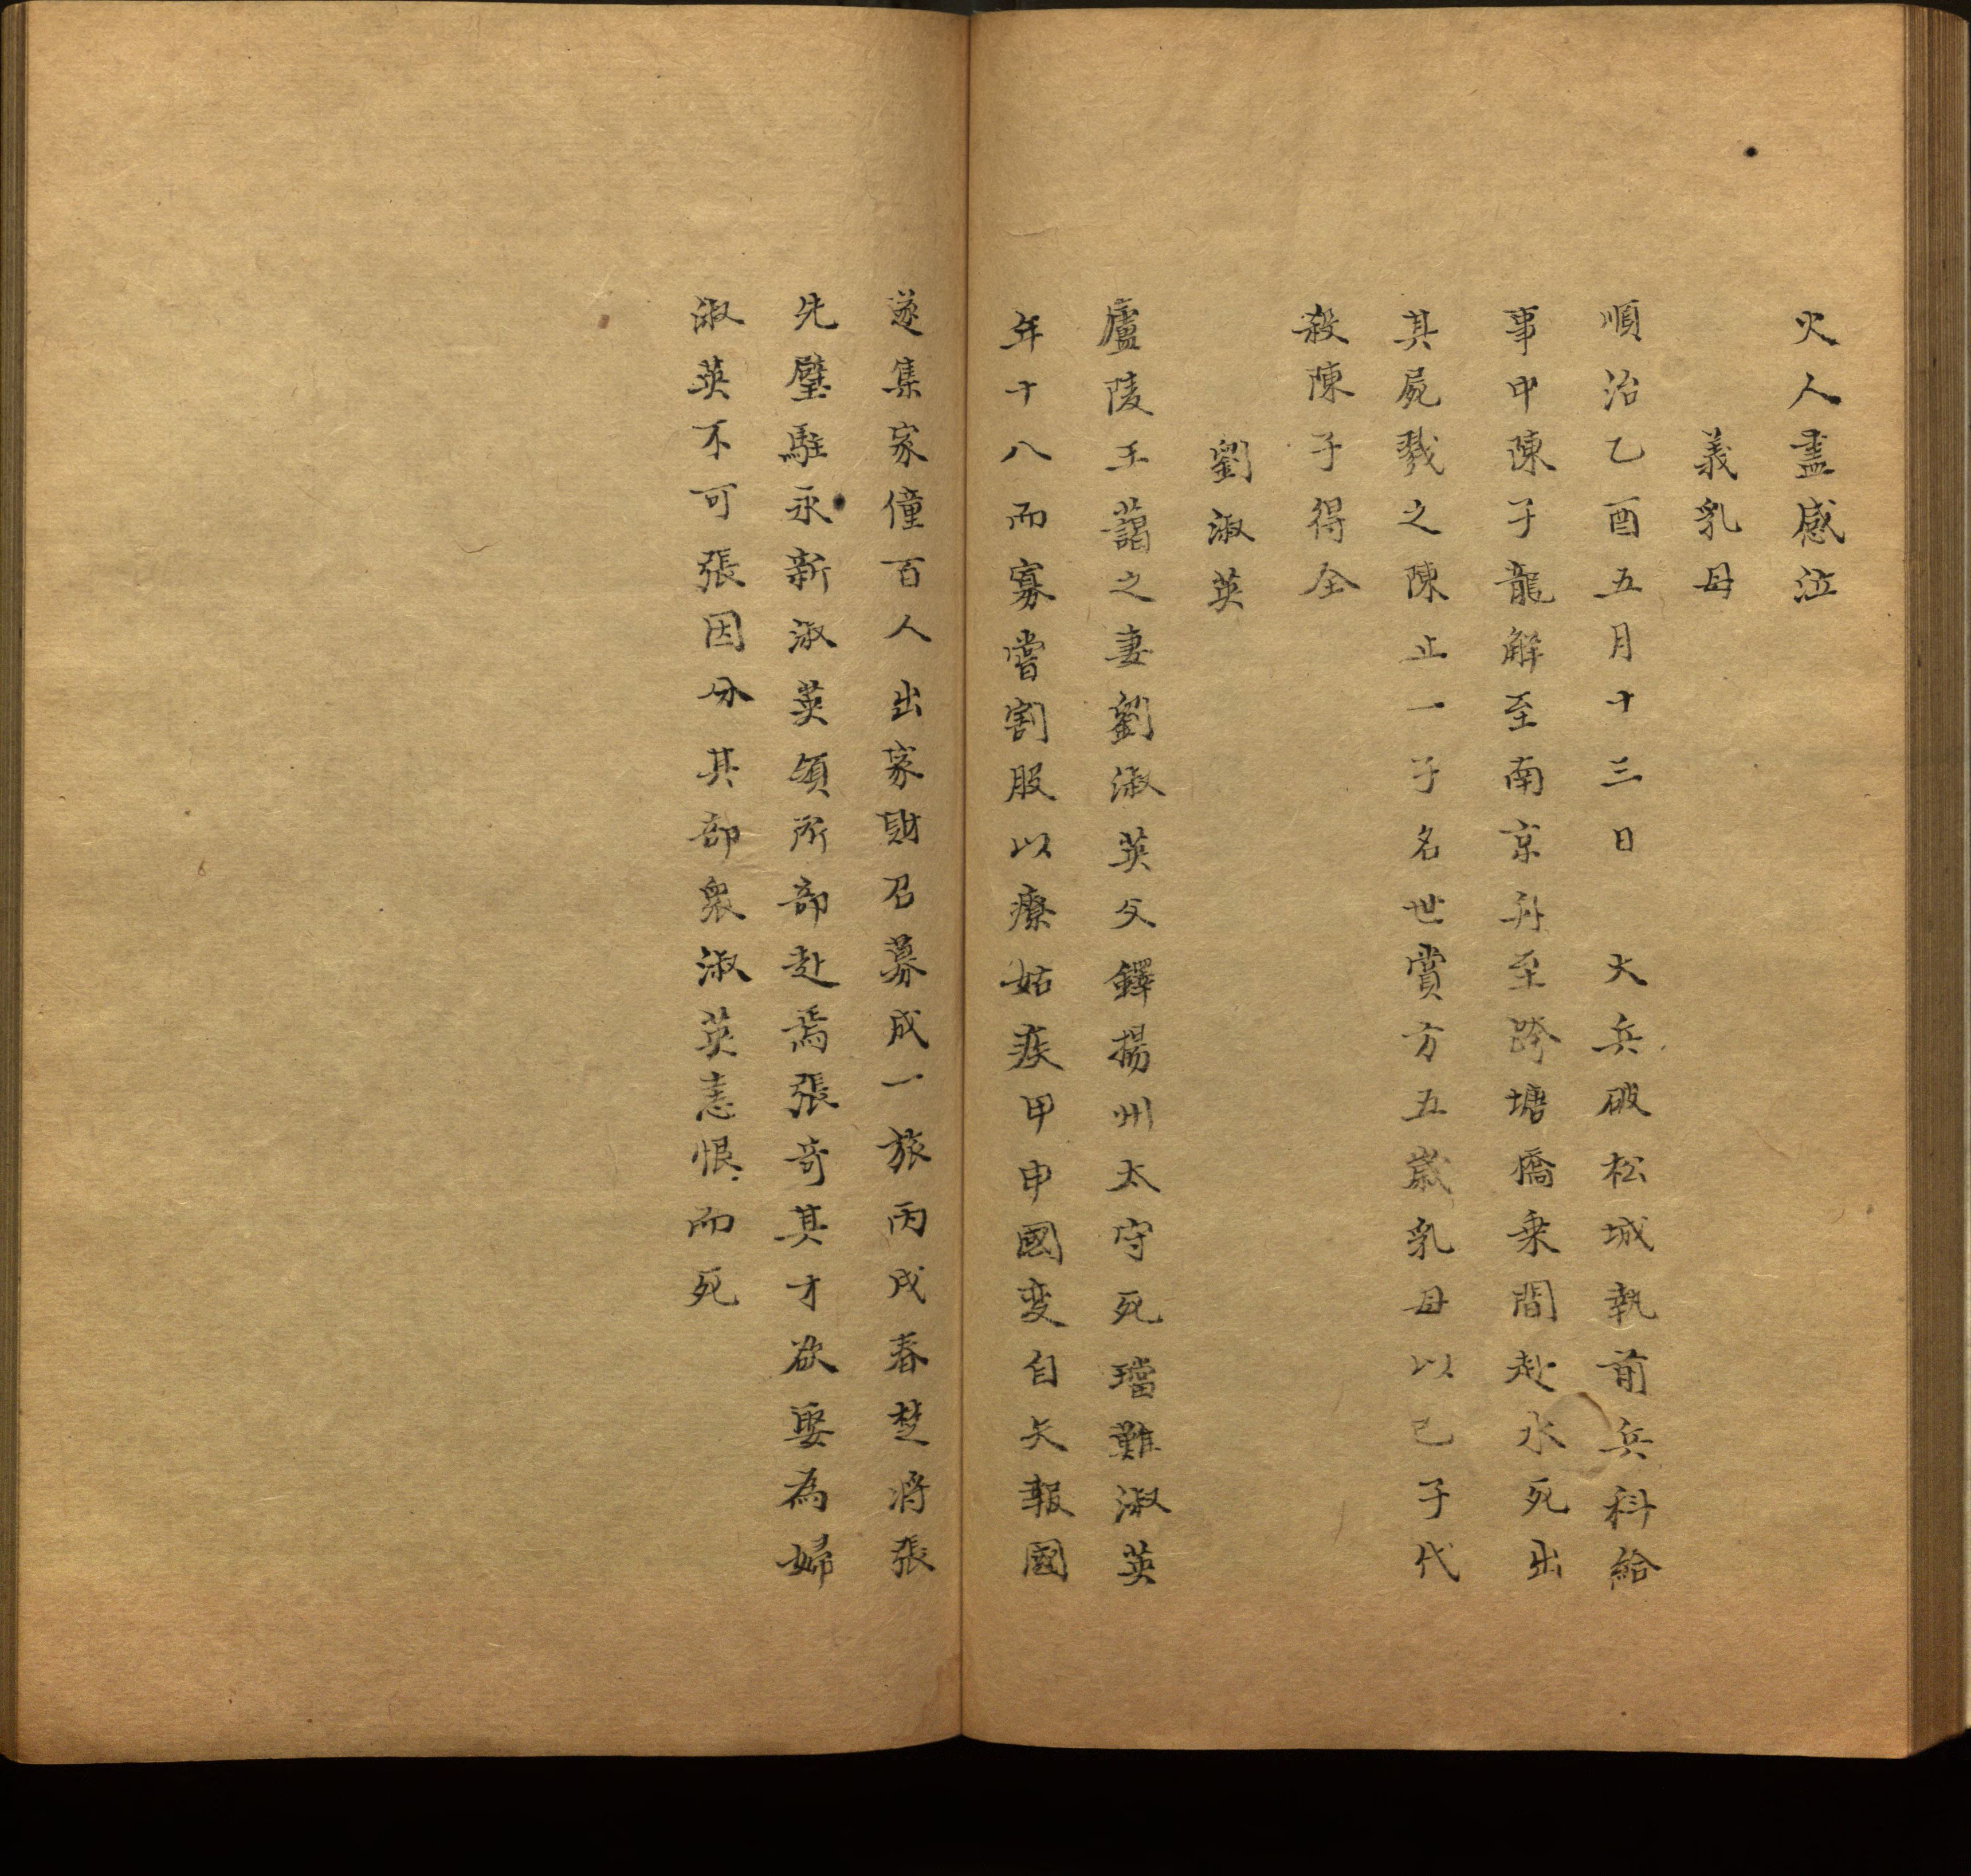 火人盡感泣
義乳母
順治乙酉五月十三日　大兵破松城執前兵科給
事中陳子龍解至南京舟至跨塘橋乘間赴水死出
其屍戮之陳止一子名世賞方五歲乳母以己子代
殺陳子得全
劉淑英
廬陵王藹之妻劉淑英父鐸揚州太守死璫難淑英
年十八而寡嘗割股以療姑疾甲申國变自矢報國
遂集家僮百人出家財召募成一旅丙戌春楚將張
先璧駐永新淑英領所部赴焉張奇其才欲娶為婦
淑英不可張因分其部衆淑英恚恨而死